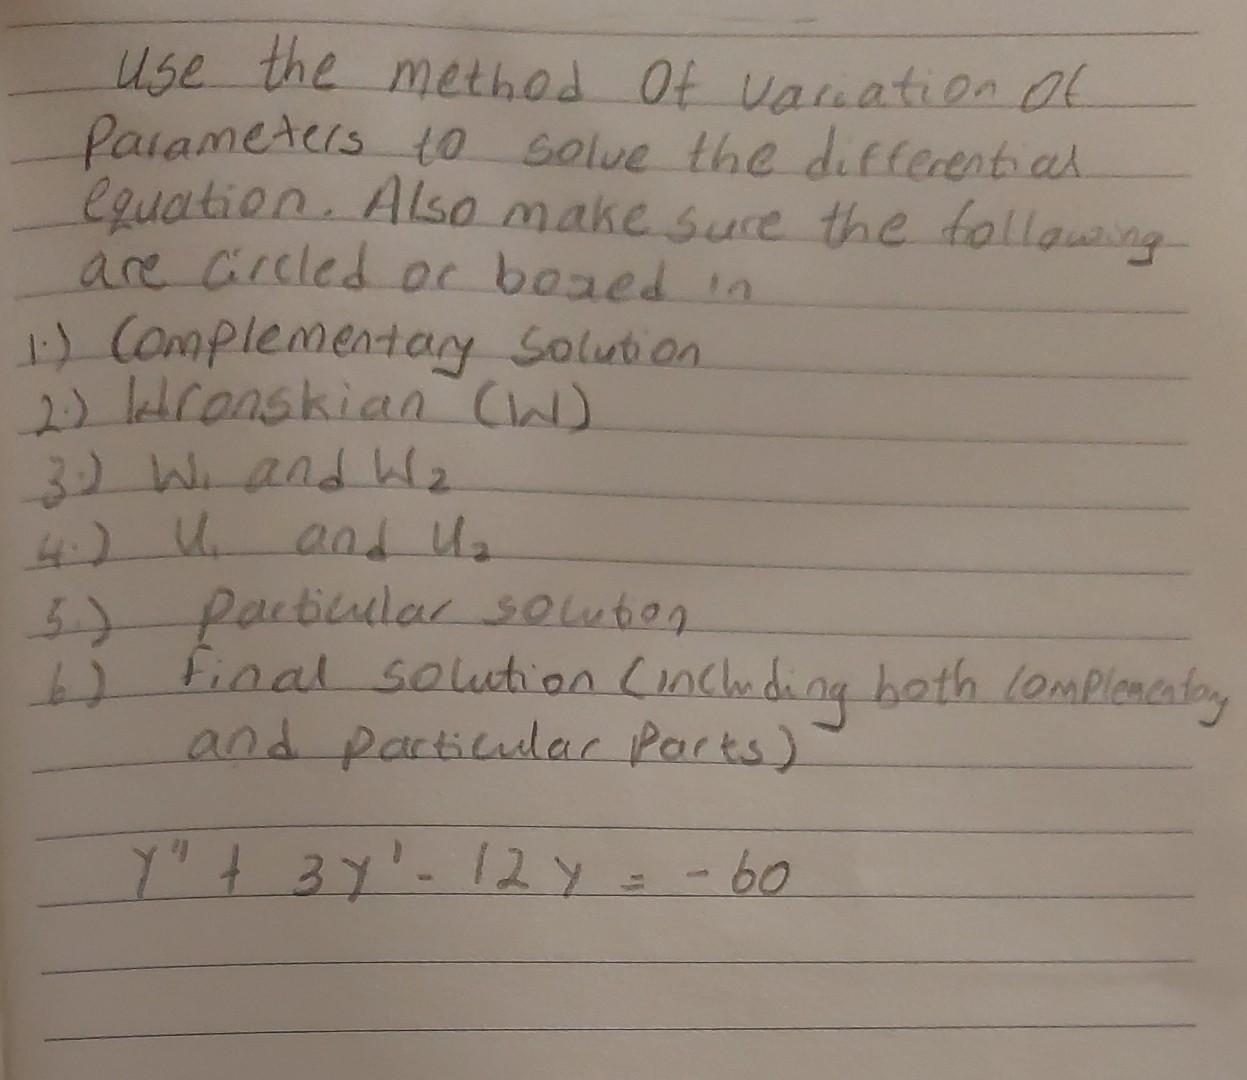 Use the method Of variation Of
Parameters to solve the differential
equation. Also make sure the following
are circled or boxed in
1.) Complementary Solution
2.) Wronskian (W)
3.) W₁ and W₂
4.) U₁ and U₂
5.) Particular solution
6) Final solution (including both complementary
and particular Parts)
y" + 3y' - 12y = -60